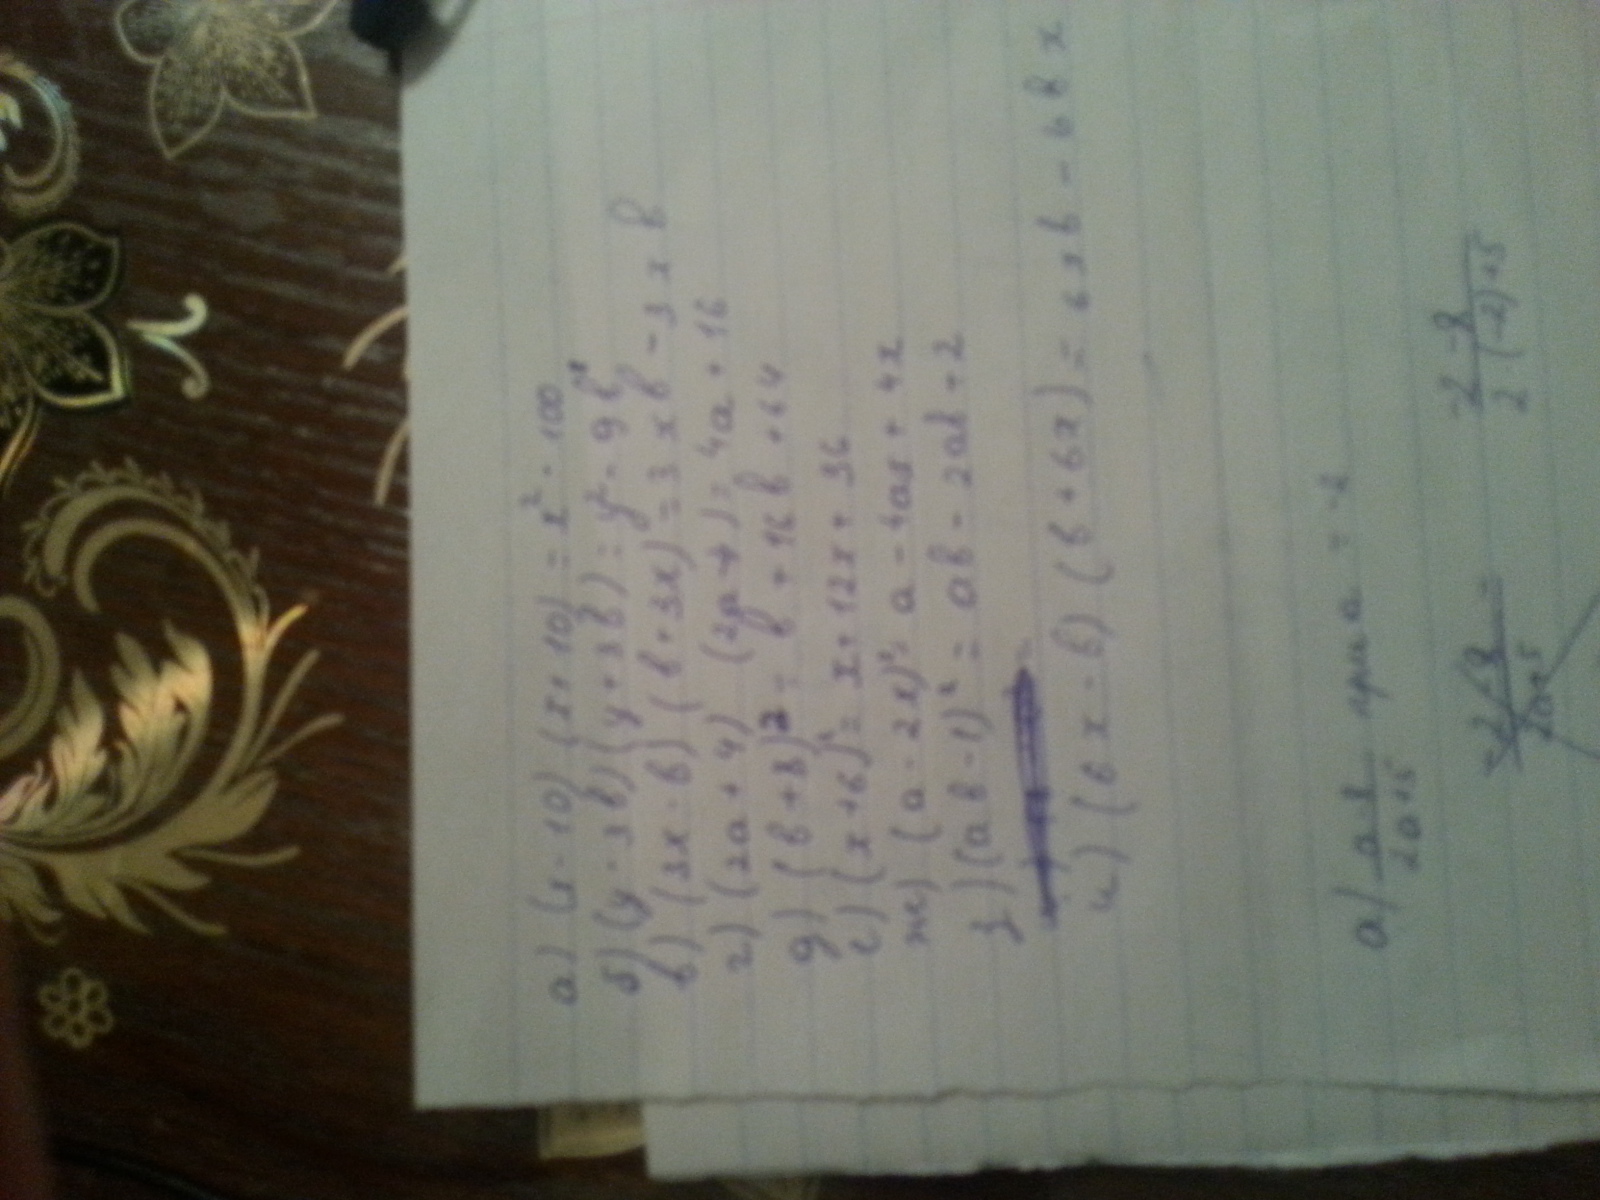 а) (x - 10) (x + 10) = x² - 100
б) (y - 3b) (y + 3b) = y² - 9b²
в) (3x - b) (b + 3x) = 3xb - 3xb
г) (2a + 4) (2a + ) = 4a + 16
д) (b + 8)² = b + 16b + 64
е) (x + 6)² = x + 12x + 36
ж) (a - 2x)² = a - 4ax + 4x
з) (ab - 1)² = ab - 2ab + 2
и) (6x - b) (b + 6x) = 6xb - 6bx
а) a-8/2a+5 при a = -2
-2-8/2a+5 = -2-8/2(-2)+5